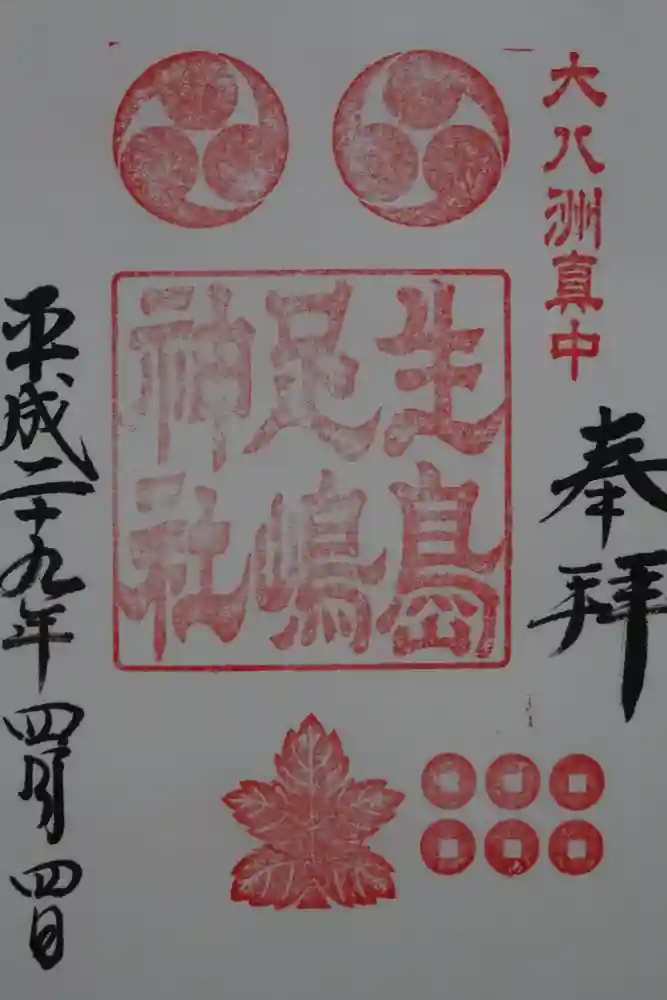 大八洲真中
奉拝
生島
足嶋
神社
平成二十九年四月四日